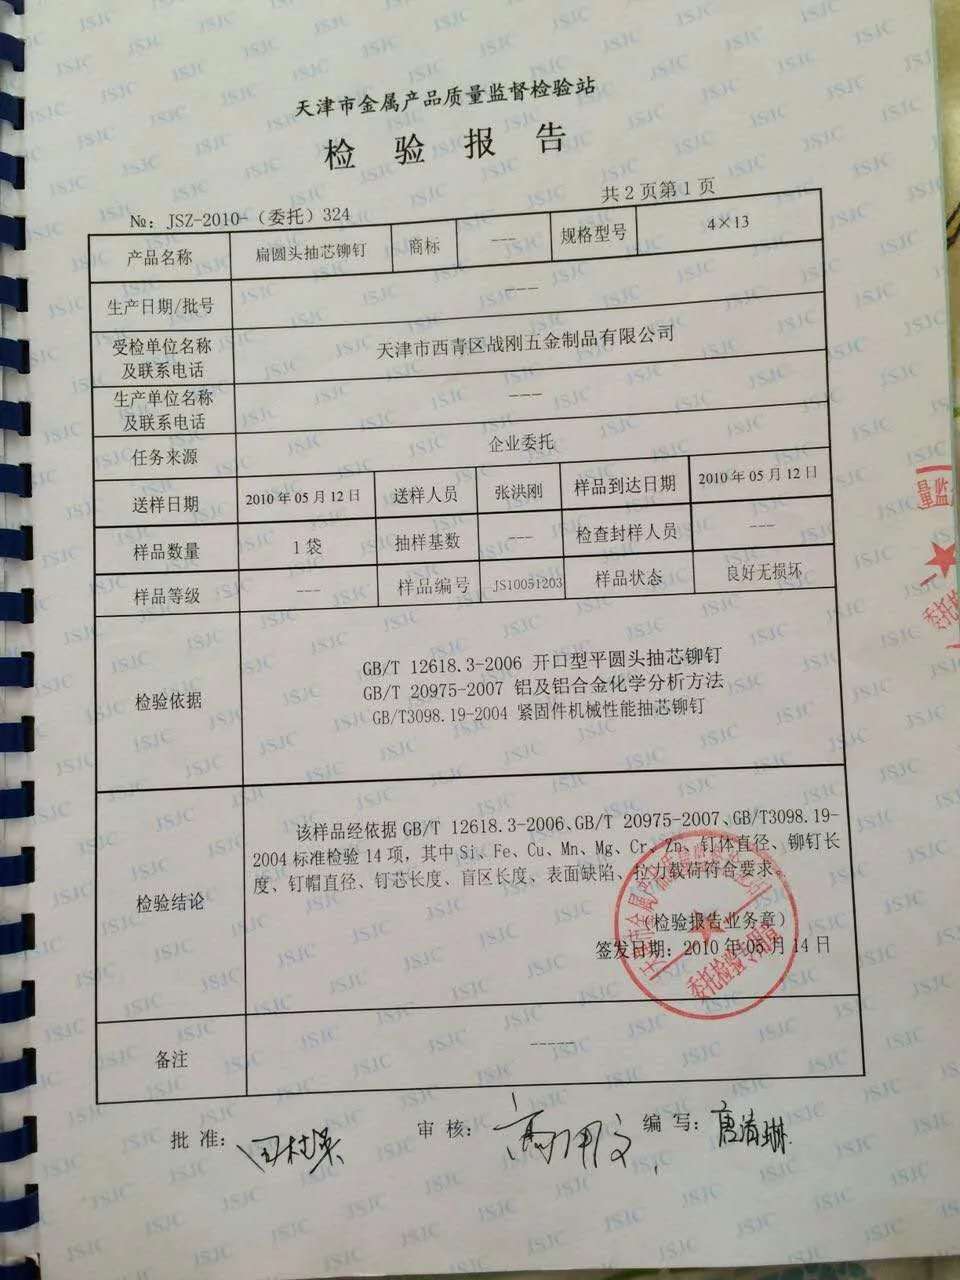 天津市金属产品质量监督检验站
检 验 报 告
共 2 页第 1 页
№: JSZ-2010-（委托）324
产品名称 扁圆头抽芯铆钉 商标 --- 规格型号 4×13
生产日期/批号 ---
受检单位名称
及联系电话
天津市西青区战刚五金制品有限公司
生产单位名称
及联系电话
---
任务来源 企业委托
送样日期 2010 年 05 月 12 日 送样人员 张洪刚 样品到达日期 2010 年 05 月 12 日
样品数量 1 袋 抽样基数 --- 检查封样人员 ---
样品等级 --- 样品编号 JS10051203 样品状态 良好无损坏
检验依据
GB/T 12618.3-2006 开口型平圆头抽芯铆钉
GB/T 20975-2007 铝及铝合金化学分析方法
GB/T3098.19-2004 紧固件机械性能抽芯铆钉
检验结论
该样品经依据 GB/T 12618.3-2006、GB/T 20975-2007、GB/T3098.19-
2004 标准检验 14 项，其中 Si、Fe、Cu、Mn、Mg、Cr、Zn、钉体直径、铆钉长
度、钉帽直径、钉芯长度、盲区长度、表面缺陷、拉力载荷符合要求。
（检验报告业务章）
签发日期：2010 年 05 月 14 日
委托检验专用章
备注 -----
批 准：
审 核：
编 写：唐清琳
JSJC